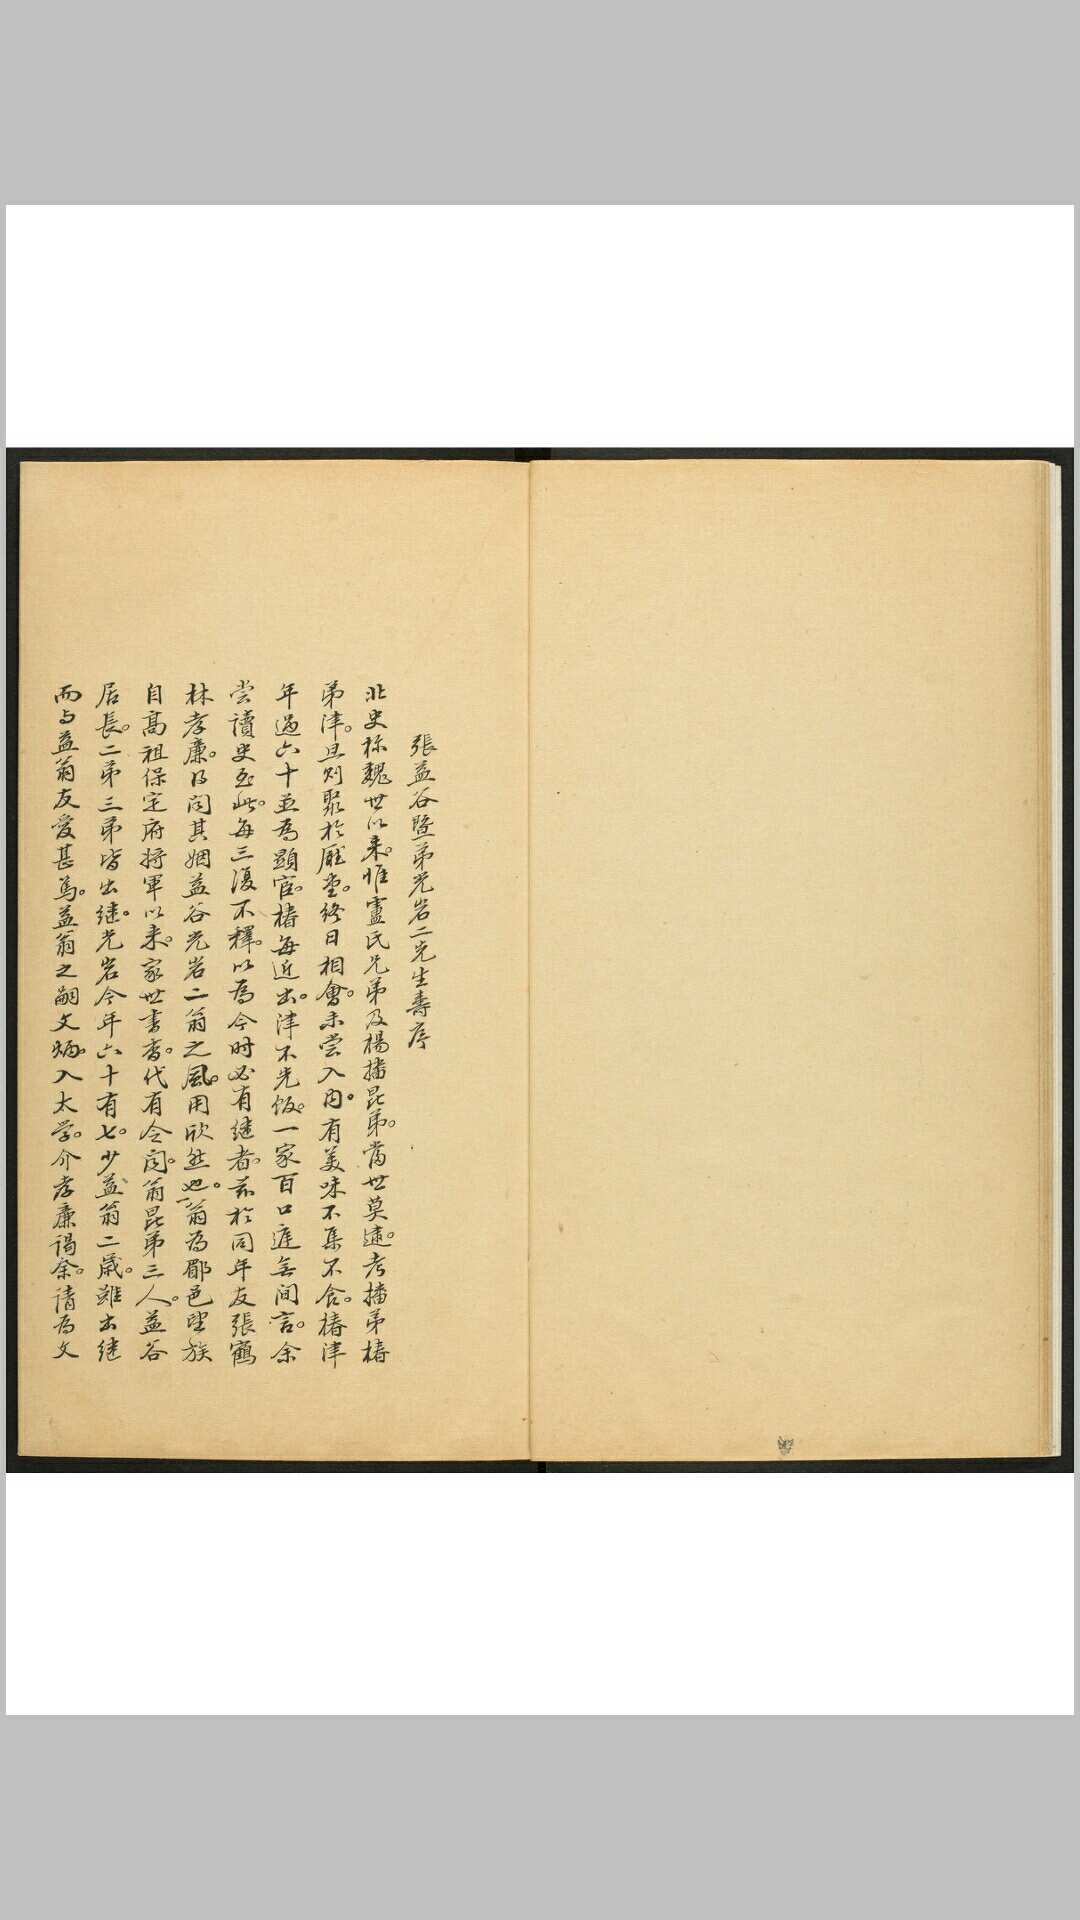 張益谷暨弟光岩二先生壽序
北史称魏世以来。惟盧氏兄弟及楊播昆弟。當世莫逮。考播弟椿
弟津。旦则聚於廳堂。终日相會。未尝入内。有美味不集不食。椿津
年過六十並為顯宦。椿每近出。津不先飯。一家百口庭無间言。余
尝讀史至此。每三復不釋。以為今时必有继者。兹於同年友張鶴
林孝廉。得闻其姻益谷光岩二翁之風。用欣然也。翁為郡邑望族
自高祖保定府将軍以来。家世書香。代有令闻。翁昆弟三人。益谷
居長。二弟三弟皆出继。光岩今年六十有七。少益翁二歲。雖出继
而与益翁友爱甚篤。益翁之嗣文炳入太学。介孝廉謁余。請为文